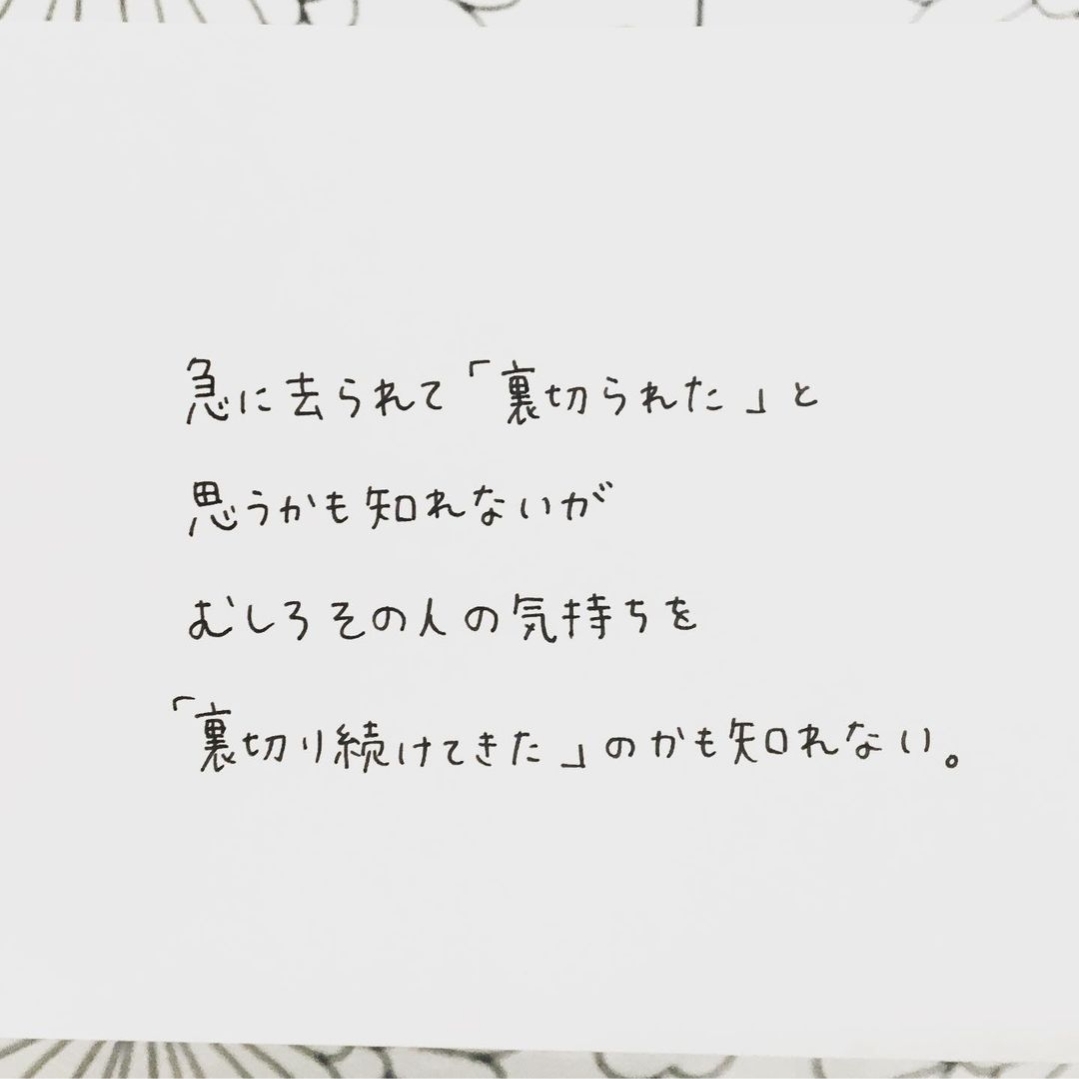 急に去られて「裏切られた」と
思うかも知れないが
むしろその人の気持ちを
「裏切り続けてきた」のかも知れない。